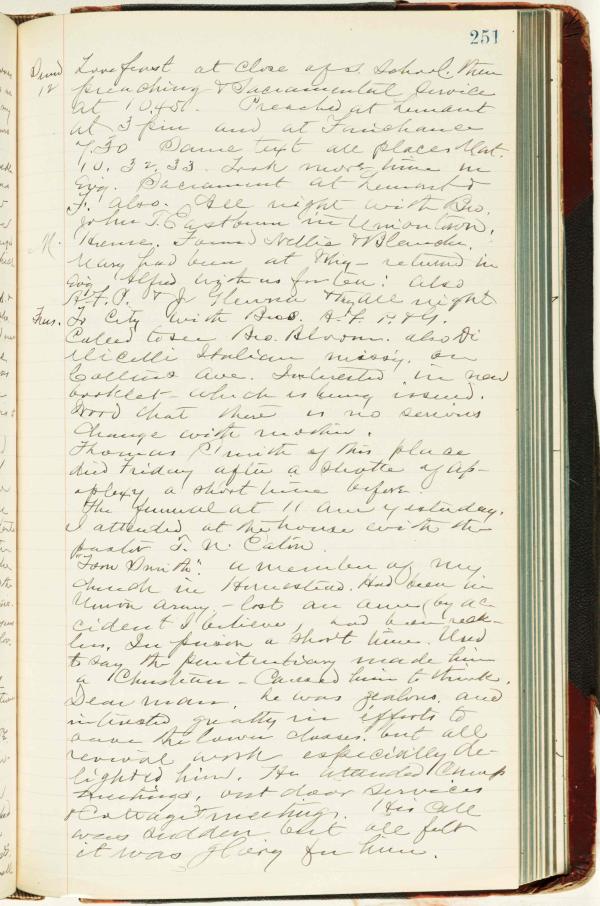 251
Lovefeast at close of S. School. Then
12 preaching & Sacramental Service
at 10.45. Preached at Lemont
at 3 pm and at Fairchance
7.30 Same text all places Mat.
10. 32, 33. Took more time in
Evg. Sacrament at Lemont &
F. also. All night with Bro.
John T. Eastburn in Uniontown.
M. Home. Found Nellie & Blanche.
Mary had been at - returned in
Evg Alfred with us for tea: also
A. F. P. & J. all night
Tues. To City with Bros. A. F. P. & G.
Called to see Bro. Bloom. also Di
Micelli Italian missy. on
Collins Ave. Interested in new
booklet - which is being issued.
Word that there is no serious
change with mother.
Thomas Smith of this place
died Friday after a stroke of ap-
oplexy a short time before.
The funeral at 11 am yesterday.
I attended at the house with the
pastor T. N. Eaton.
"Tom Smith" a member of my
church in Homestead. Had been in
Union army, - lost an arm (by ac-
cident I believe, and been reck-
less. In prison a short time. Used
to say the penitentiary made him
a Christian - Caused him to think.
Dear man, he was zealous, and
interested greatly in efforts to
save the lower classes. but all
revival work especially de-
lighted him. He attended Camp
meetings, out door services
& Cottage meetings. His call
was sudden but all felt
it was glory for him.